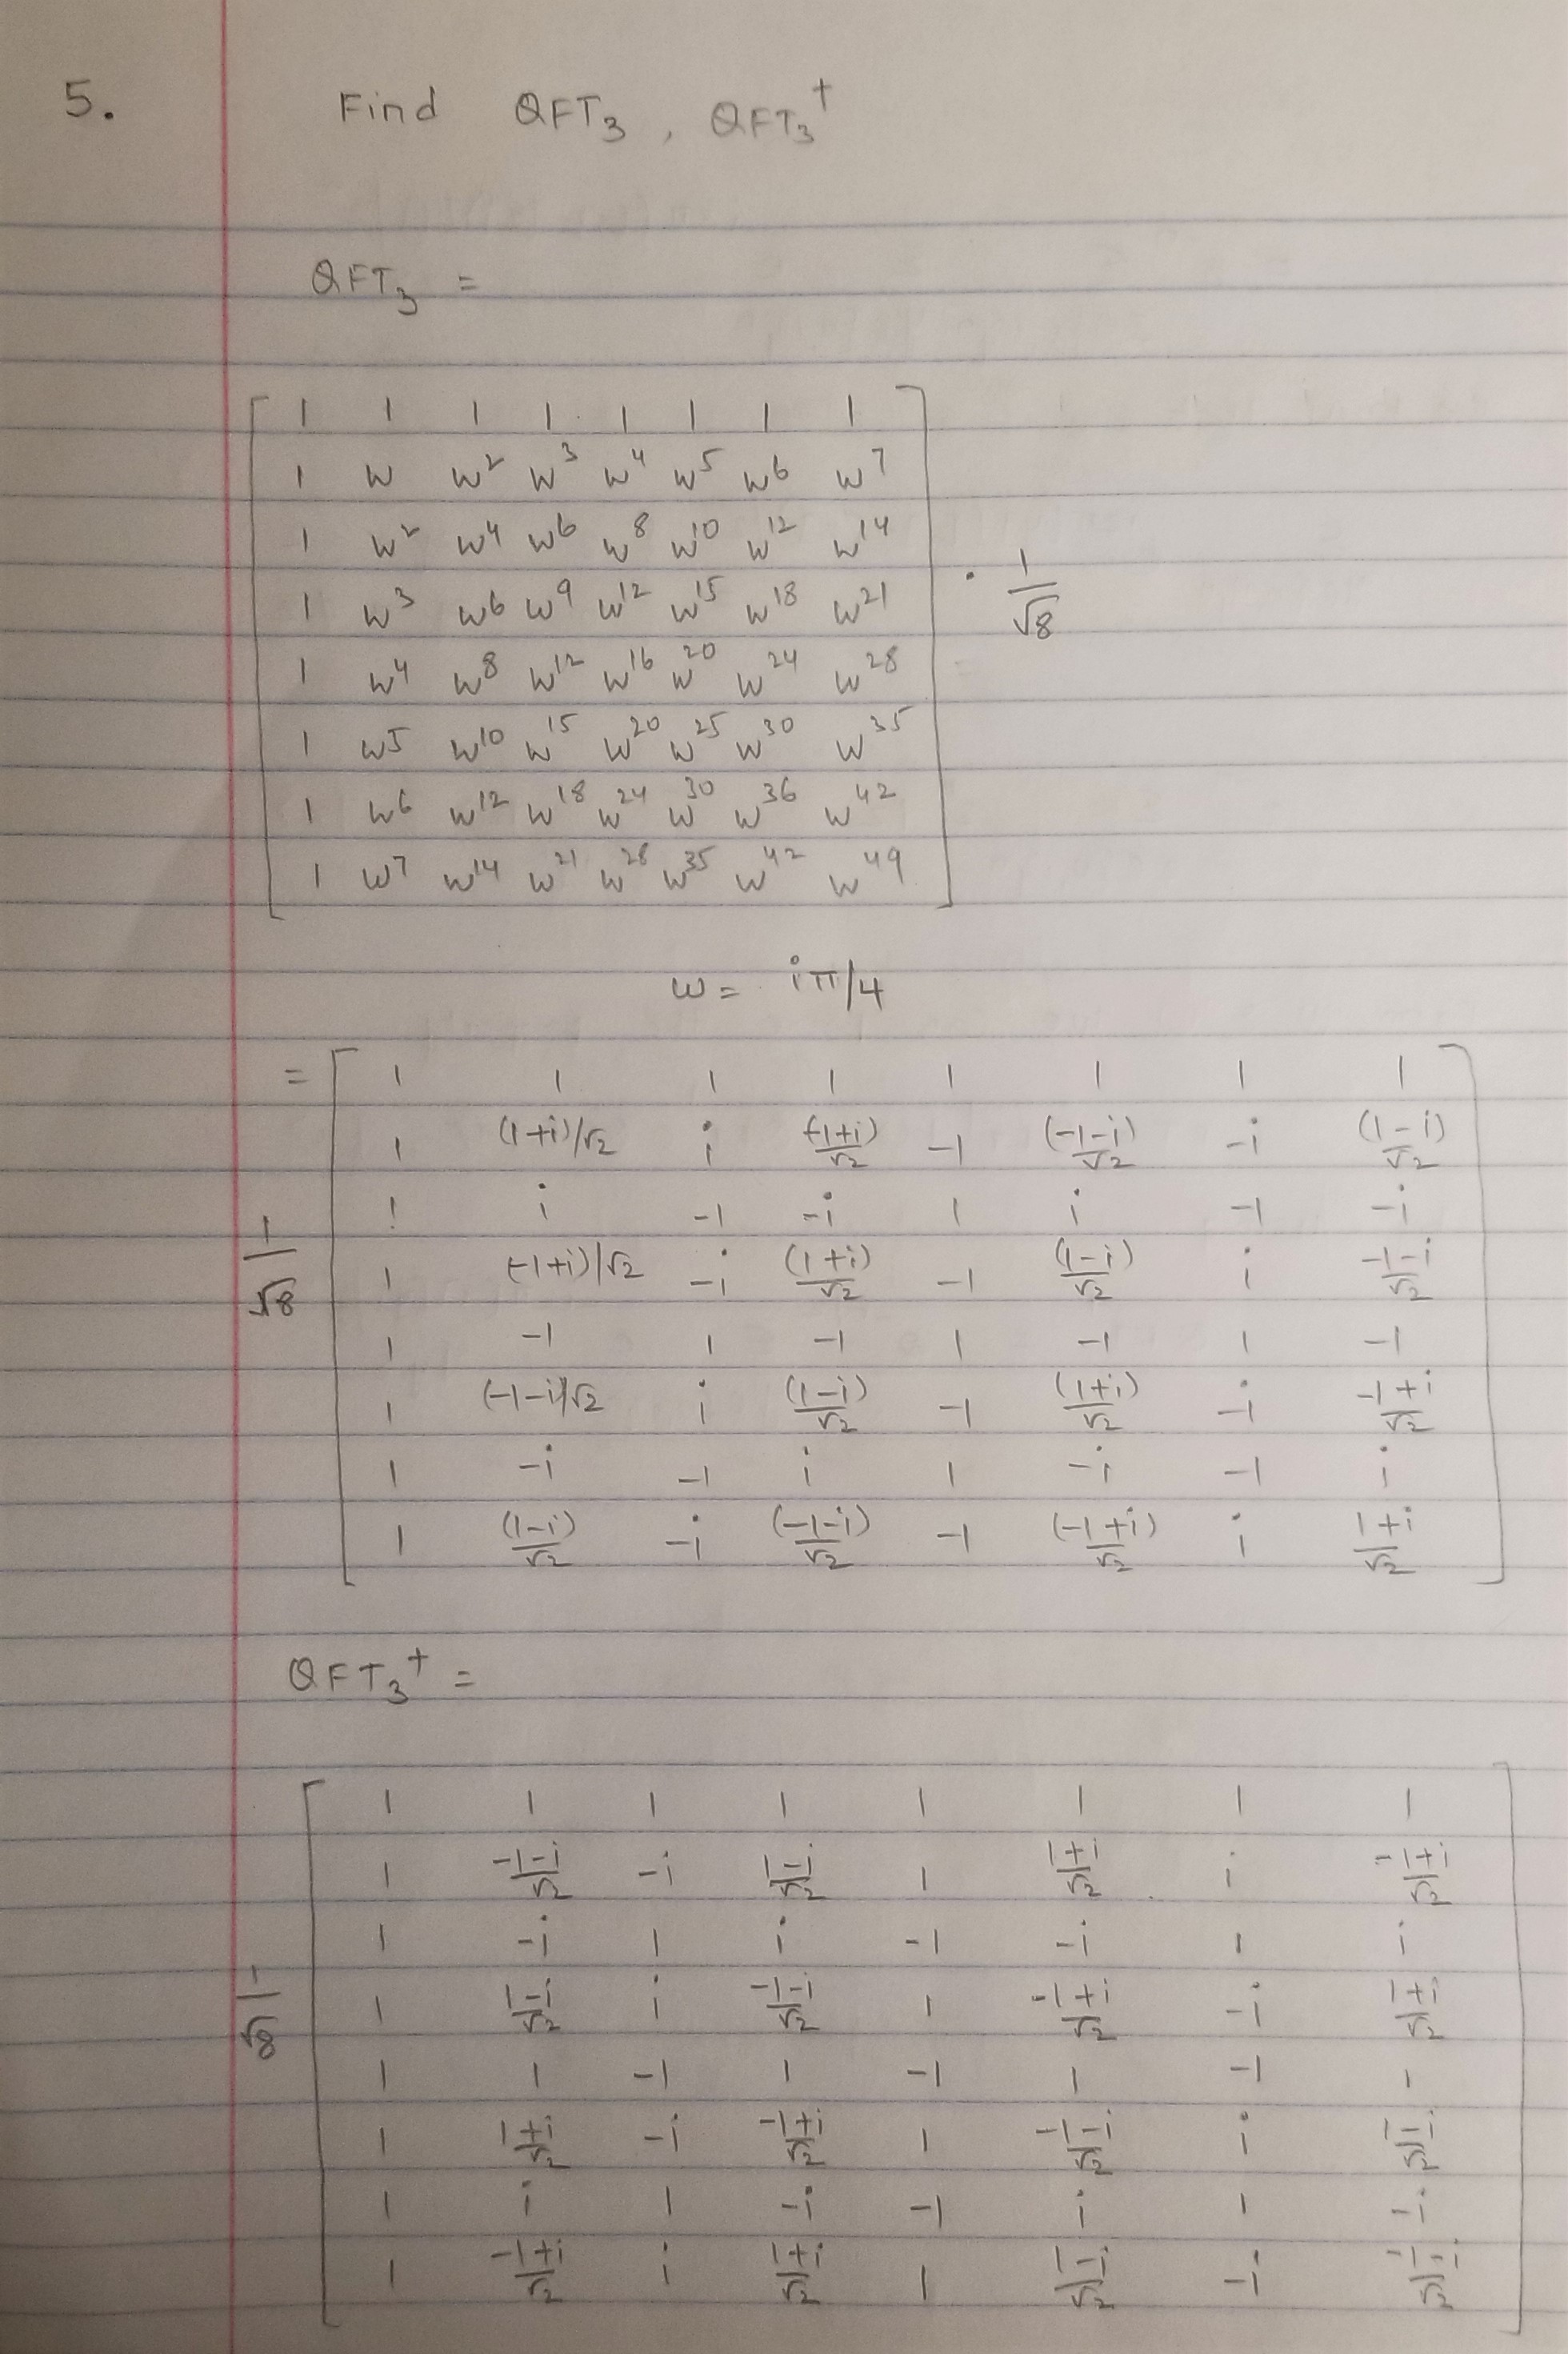 5. Find QFT₃, QFT₃†
QFT₃ =
1 1 1 1 1 1 1 1
1 w w² w³ w⁴ w⁵ w⁶ w⁷
1 w² w⁴ w⁶ w⁸ w¹⁰ w¹² w¹⁴
1 w³ w⁶ w⁹ w¹² w¹⁵ w¹⁸ w²¹ · 1/√8
1 w⁴ w⁸ w¹² w¹⁶ w²⁰ w²⁴ w²⁸
1 w⁵ w¹⁰ w¹⁵ w²⁰ w²⁵ w³⁰ w³⁵
1 w⁶ w¹² w¹⁸ w²⁴ w³⁰ w³⁶ w⁴²
1 w⁷ w¹⁴ w²¹ w²⁸ w³⁵ w⁴² w⁴⁹
w = iπ/4
= 1 1 1 1 1 1 1 1
1 (1+i)/√2 i (-1+i)/√2 -1 (-1-i)/√2 -i (1-i)/√2
1 i -1 -i 1 i -1 -i
1/√8 1 (-1+i)/√2 -i (1+i)/√2 -1 (1-i)/√2 i -1-i/√2
1 -1 1 -1 1 -1 1 -1
1 (-1-i)/√2 i (1-i)/√2 -1 (1+i)/√2 -i -1+i/√2
1 -i -1 i 1 -i -1 i
1 (1-i)/√2 -i (-1-i)/√2 -1 (-1+i)/√2 i 1+i/√2
QFT₃† =
1 1 1 1 1 1 1 1
1 -1-i/√2 -i 1-i/√2 1 1+i/√2 i -1+i/√2
1 -i 1 i -1 -i 1 i
1/√8 1 1-i/√2 i -1-i/√2 1 -1+i/√2 -i 1+i/√2
1 1 -1 1 -1 1 -1 1
1 1+i/√2 -i -1+i/√2 1 -1-i/√2 i 1-i/√2
1 i 1 -i -1 i 1 -i
1 -1+i/√2 i 1+i/√2 1 1-i/√2 -i -1-i/√2